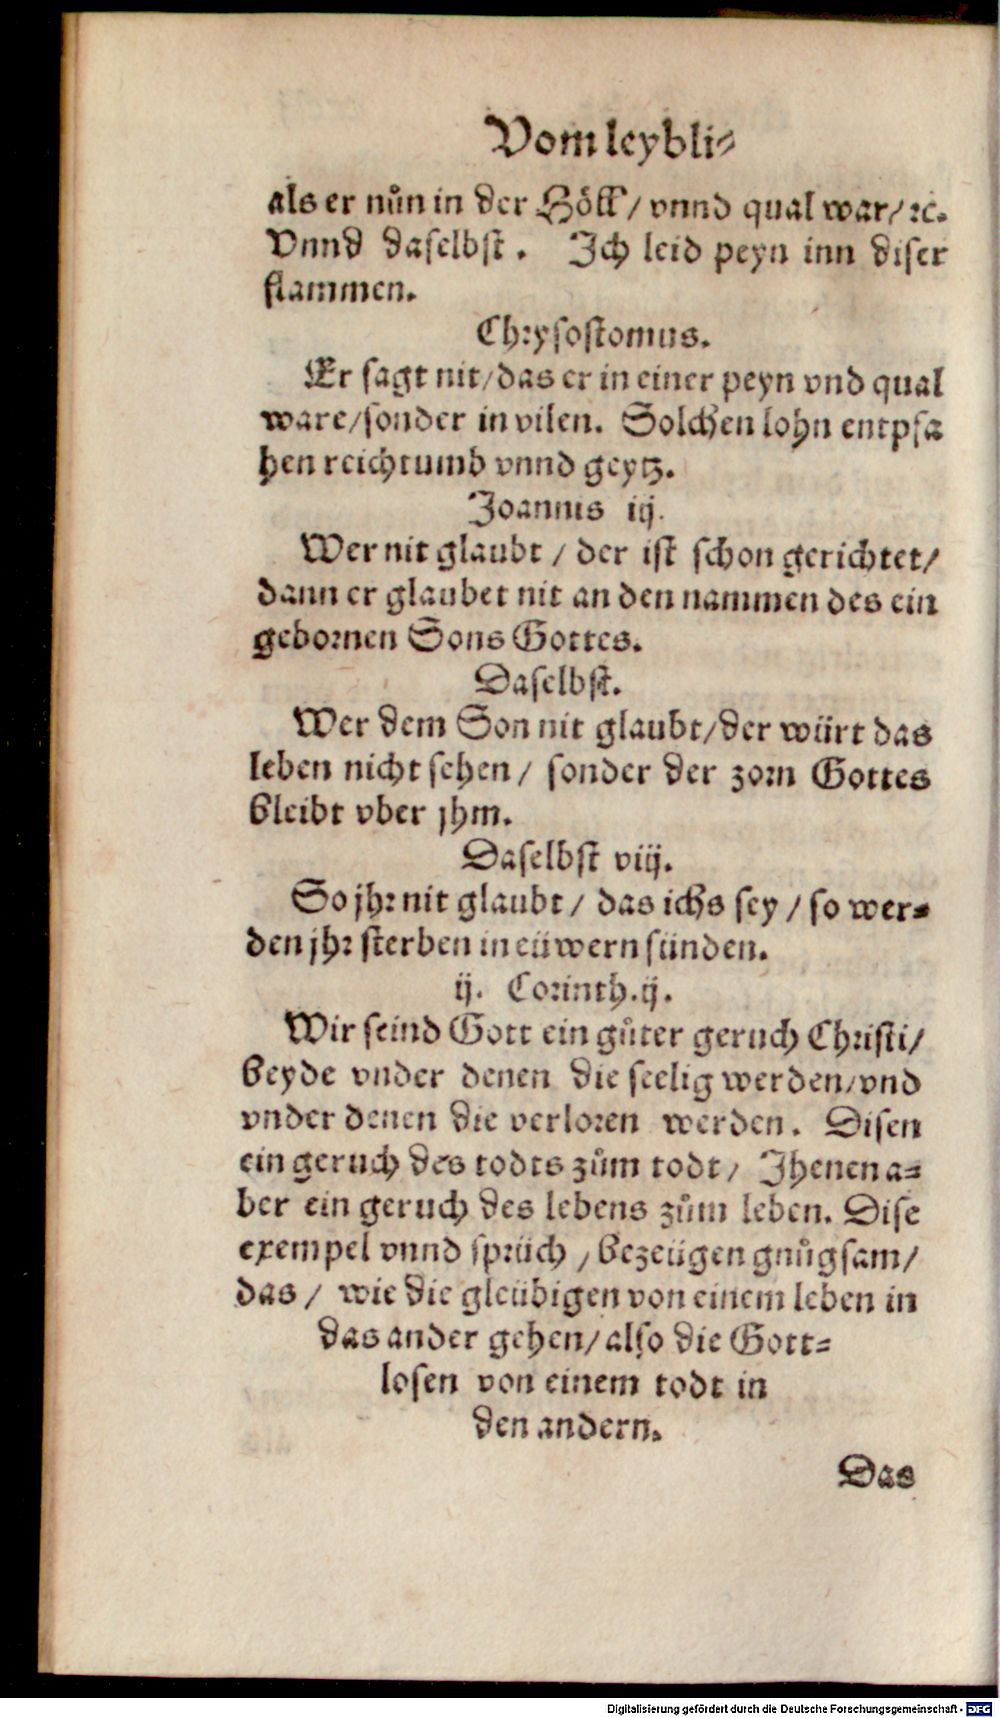 Vom leybli⸗
als er nůn in der Höll / vnnd qual war / ꝛc.
Vnnd daselbst. Ich leid peyn inn diser
flammen.
Chrysostomus.
Er sagt nit / das er in einer peyn vnd qual
ware / sonder in vilen. Solchen lohn entpfa
hen reichtumb vnnd geytz.
Joannis iij.
Wer nit glaubt / der ist schon gerichtet /
dann er glaubet nit an den nammen des ein
gebornen Sons Gottes.
Daselbst.
Wer dem Son nit glaubt / der würt das
leben nicht sehen / sonder der zorn Gottes
bleibt vber jhm.
Daselbst viij.
So jhr nit glaubt / das ichs sey / so wer⸗
den jhr sterben in eüwern sünden.
ij. Corinth. ij.
Wir seind Gott ein gůter geruch Christi /
beyde vnder denen die seelig werden / vnd
vnder denen die verloren werden. Disen
ein geruch des todts zům todt / Jhenen a⸗
ber ein geruch des lebens zům leben. Dise
exempel vnnd sprüch / bezeügen gnůgsam /
das / wie die gleübigen von einem leben in
das ander gehen / also die Gott⸗
losen von einem todt in
den andern.
Das
Digitalisierung gefördert durch die Deutsche Forschungsgemeinschaft - DFG